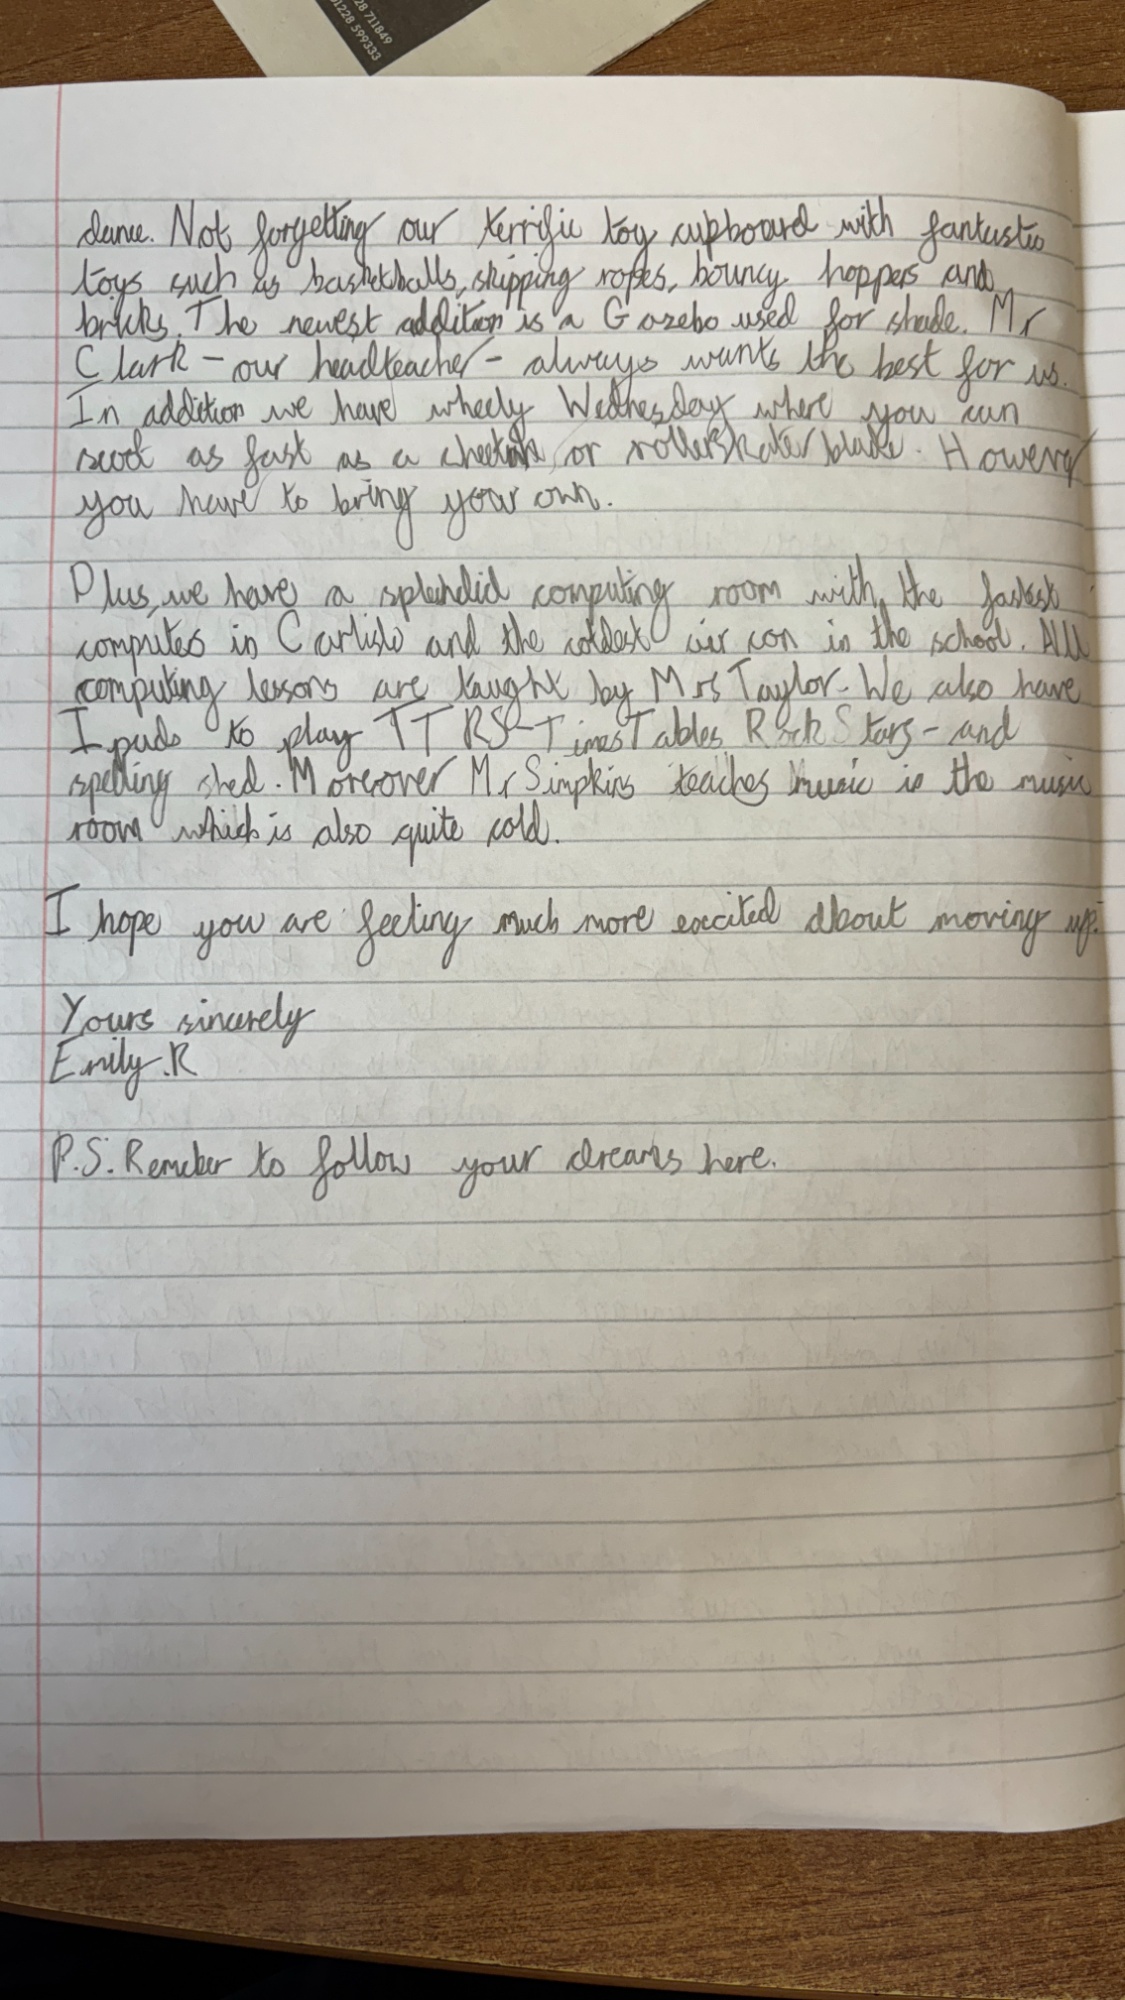 28 711849
01228 599333
dance. Not forgetting our terrific toy cupboard with fantastic
toys such as basketballs, skipping ropes, bouncy hoppers and
bricks. The newest addition is a Gazebo used for shade. Mr
Clark - our headteacher - always wants the best for us.
In addition we have wheely Wednesday where you can
scoot as fast as a cheetah or rollerskater blade. However
you have to bring your own.
Plus, we have a splendid computing room with the fastest
computes in Carlisle and the coldest air con in the school. All
computing lessons are taught by Mrs Taylor. We also have
Ipads to play TTRS - Times Tables Rock Stars - and
spelling shed. Moreover Mr Simpkins teaches music is the music
room which is also quite cold.
I hope you are feeling much more excited about moving up.
Yours sincerely
Emily.R
P.S. Remeber to follow your dreams here.